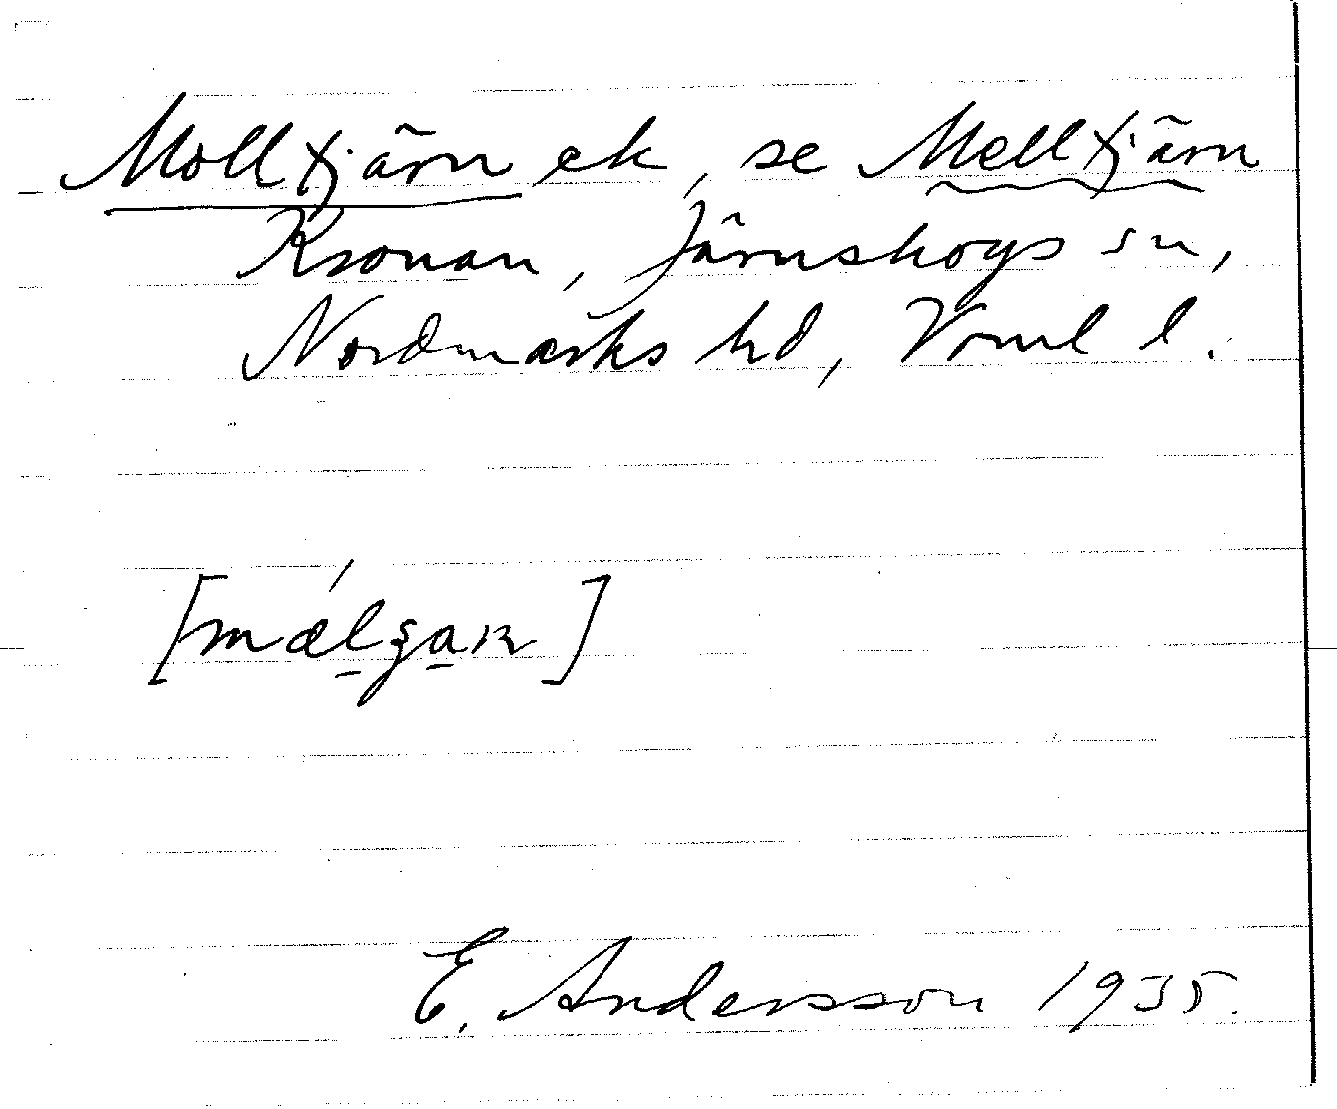 Molltjärn ek, se Melltjärn
Kronan, Järnskogs sn,
Nordmarks hd, Vrml l.
E. Andersson 1935.